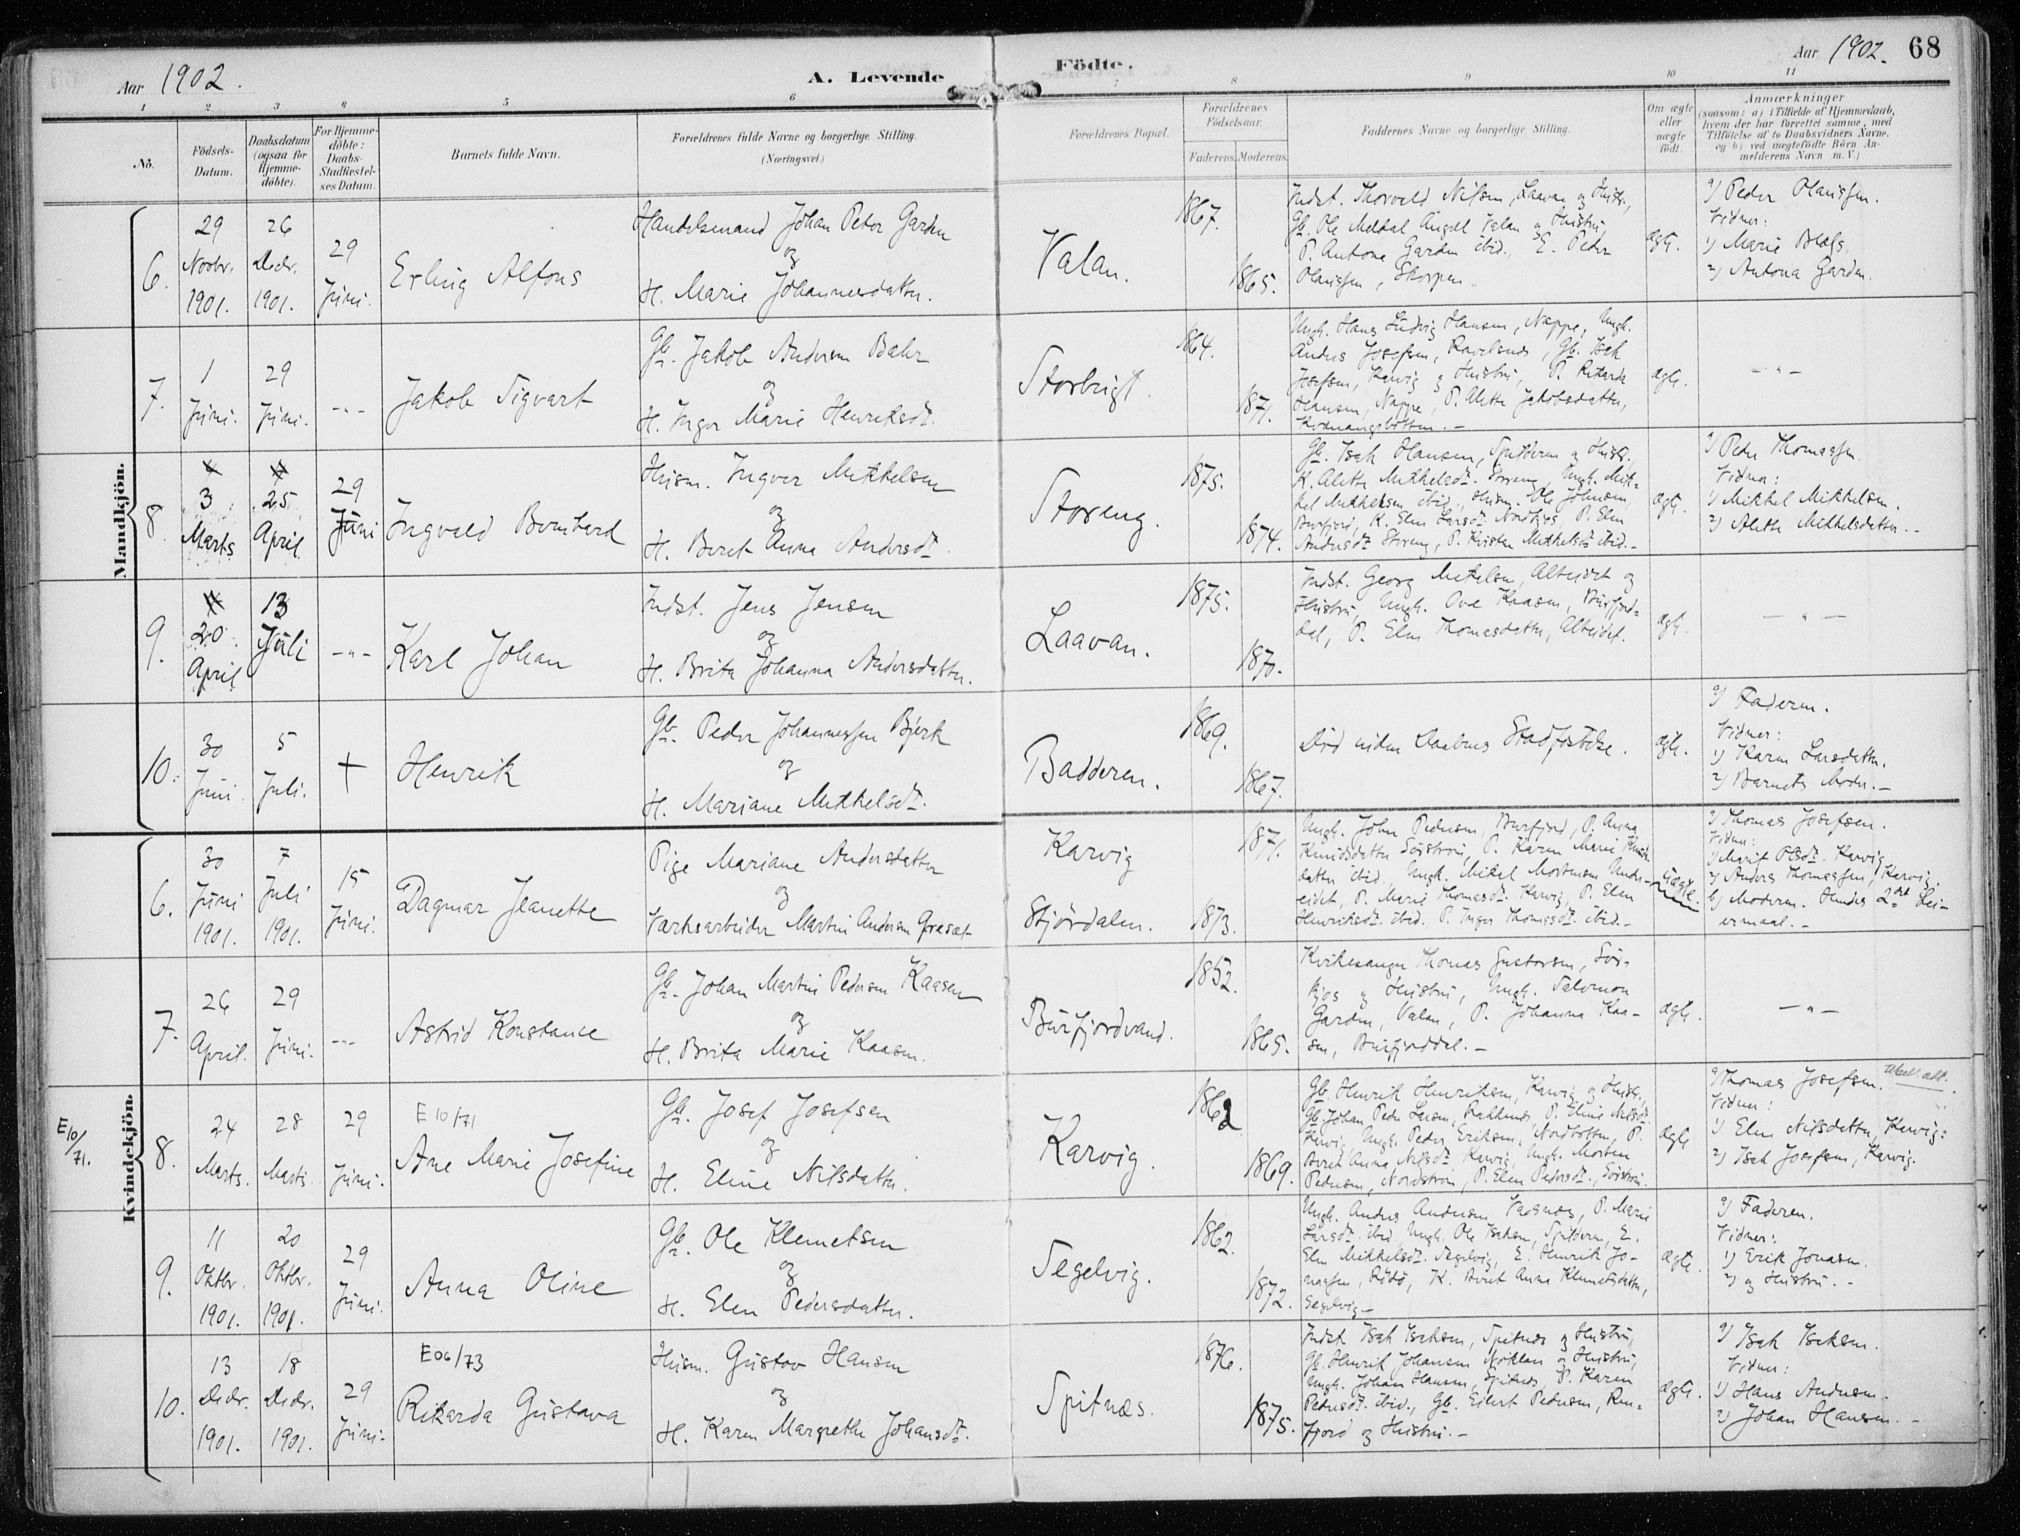 Aar 1902.
A. Levende
Födte.
Aar 1902. 68
1 2 3 4 5 6 7 8 9 10 11
No.
Födsels-Datum.
Daabsdatum (ogsaa for Hjemme-döbte).
For Hjemme-döbte: Daabs-Stadfæstel-ses Datum.
Barnets fulde Navn.
Forældrenes fulde Navne og borgerlige Stilling. (Næringsvei.)
Forældrenes Bopæl.
Forældrenes Födselsaar.
Faderens. Moderens.
Faddernes Navne og borgerlige Stilling.
Om ægte eller uægte födt.
Anmærkninger
(saasom: a) i Tilfælde af Hjemmedaab,
hvem der har forrettet samme, med
Tilföielse af to Daabsvidners Navne,
og b) ved uægtefödte Börn An-
melderens Navn m. V.)
Mandkjön.
6.
29 Novbr. 1901.
26 Decbr. 1901.
29 Juni.
Erling Alfons
Handelsmand Johan Peter Garden
og
H. Marie Johannesdatter.
Valan.
1867.
1865.
Indst. Thorvald Nilsen, Laavan og Hustr.,
Gb. Ole Meldal Angel Valan og Hustru,
P. Antona Garden ibid., E. Peder
Olaussen, Skorpen.
ægt.
a) Peder Olaussen.
Vidner:
1) Marie
2) Antona Garden.
7.
1 Juni.
29 Juni.
-"-
Jakob Sigvart
Gb. Jakob Andersen Bakr
og
H. Inger Marie Henriksdt.
Storbugt.
1864.
1871.
Ungk. Hans Ludvig Hansen, Nappe, Ungk.
Anders Josefsen, Gb. Isak
Josefsen, Karvig og Hustru, P. Rikarda
Hansen, Nappe, P. Alette Jakobsdatter,
Kvænangsbotten.-
ægt.
-"-
8.
3 Marts
25 April
29 Juni
Ingvald Bernhard
Husm. Ingver Mikkelsen
og
H. Beret Anna Andersdt.
Storeng.
1875.
1874.
Gb. Isak Hansen, Spitderen og Hustr.,
K. Alette Mikkelsdt. Storeng, Ungk. Mik-
kel Mikkelsen ibid., Husm. Ole Johnsen,
Burfjord, K. Elen Larsdt. P. Elen
Andersdt. Storeng, P. Kirsten Mikkelsdt. ibid.-
ægt.
a) Peder Thomassen.
Vidner:
1) Mikkel Mikkelsen.
2) Alette Mikkelsdatter.-
9.
20. April
13 Juli
-"-
Karl Johan
Indst. Jens Jensen
og
H. Brita Johanna Andersdatter.
Laavan.
1875.
1870.
Indst. Georg Mikelsen, Alteidet og
Hustru, Ungk. Ove Kaasen, Burfjord-
dal, P. Elen Thomasdatter, Alteidet.
ægt.
-"-
10.
30 Juni.
5 Juli.
+
Henrik
Gb. Peder Johannessen Bjerk
og
H. Mariane Mikkelsdt.
Badderen.
1869.
1867.
Död uden Daabens Stadfæstelse.
ægt.
a) Faderen.
Vidner:
1) Karen Larsdatter.
2) Barnets Moder.-
Kvindekjön.
6.
30 Juni 1901.
7 Juli 1901.
15 Juni.
Dagmar Jeanette
Pige Mariane Andersdatter
og
Værksarbeider Martin Andersen
Karvig
Stjördalen.
1871.
1873.
Ungk. John Pedersen, Burfjord, P. Anna
Knudsdatter Sörstrøm, P. Karen Marie Knuds-
datter ibid., Ungk. Mikal Mortensen
P. Marie Thomasdt. Karvig, P. Elen
Henriksdt. ibid. P. Inger Thomasdt. ibid.-
uægte.
a) Thomas Josefsen.
Vidner:
1) Marit Olsdt. Karvig
2) Anders Thomassen, Karvig.
b) Moderen. Hendes 2det Lei-
ermaal.-
7.
26 April.
29 Juni.
-"-
Astrid Konstance
Gb. Johan Martin Pedersen Kaasen
og
H. Brita Marie Kaasen.
Burfjordvand.
1852.
1865.
Kirkesanger Thomas Gustavsen, Sör-
kjos og Hustru, Ungk. Salomon
Garden, Valan, P. Johanna Kaa-
sen, Burfjorddal.-
ægt.
-"-
E10/71.
8.
24 Marts.
28 Marts.
29 Juni.
E 10/71
Ane Marie Josefine
Gb. Josef Josefsen
og
H. Eline Nilsdatter.
Karvig.
1862
1869.
Gb. Henrik Henriksen, Karvig og Hustr.,
Gb. Johan Peder Larsen, P. Eline Nilsdt.
Karvig, Ungk. Peder Eriksen, Nordbotten, P.
Beret Anna Nilsdt. Karvig, Ungk. Morten
Pedersen, Nordstrøm, P. Elen Pedersdt., Sörstrøm.
ægt.
a) Thomas Josefsen.
Vidner:
1) Elen Nilsdatter, Karvig.
2) Isak Josefsen, Karvig.
9.
11 Oktbr. 1901.
20 Oktbr. 1901.
29 Juni.
Anna Oline
Gb. Ole Klemetsen
og
H. Elen Pedersdatter.
Segelvig.
1862.
1872.
Ungk. Anders Andersen P. Marie
Larsdt. ibid. Ungk. Ole Isaksen, Spitderen, E.
Elen Mikkelsdt. Segelvig, E. Henrik Jo-
nassen, Rödö, K. Beret Anna Klemetsdatter,
Segelvig.-
ægt.
a) Faderen.
Vidner:
1) Erik Jonasen.
2) og Hustru.-
10.
13 Decbr. 1901.
18 Decbr. 1901.
29 Juni.
E06/73
Rikarda Gustava
Husm. Gustav Hansen
og
H. Karen Margrethe Johansdt.
Spitnæs.
1876.
1875.
Indst. Isak Isaksen, Spitnæs og Hustru,
Gb. Henrik Johansen Nöklan og Hustru,
Ungk. Johan Hansen, Spitnæs, P. Karen
Pedersdt. ibid., Gb. Eilert Pedersen, Ren-
fjord og Hustru.-
ægt.
a) Isak Isaksen.
Vidner:
1) Hans Andersen.
2) Johan Hansen.-